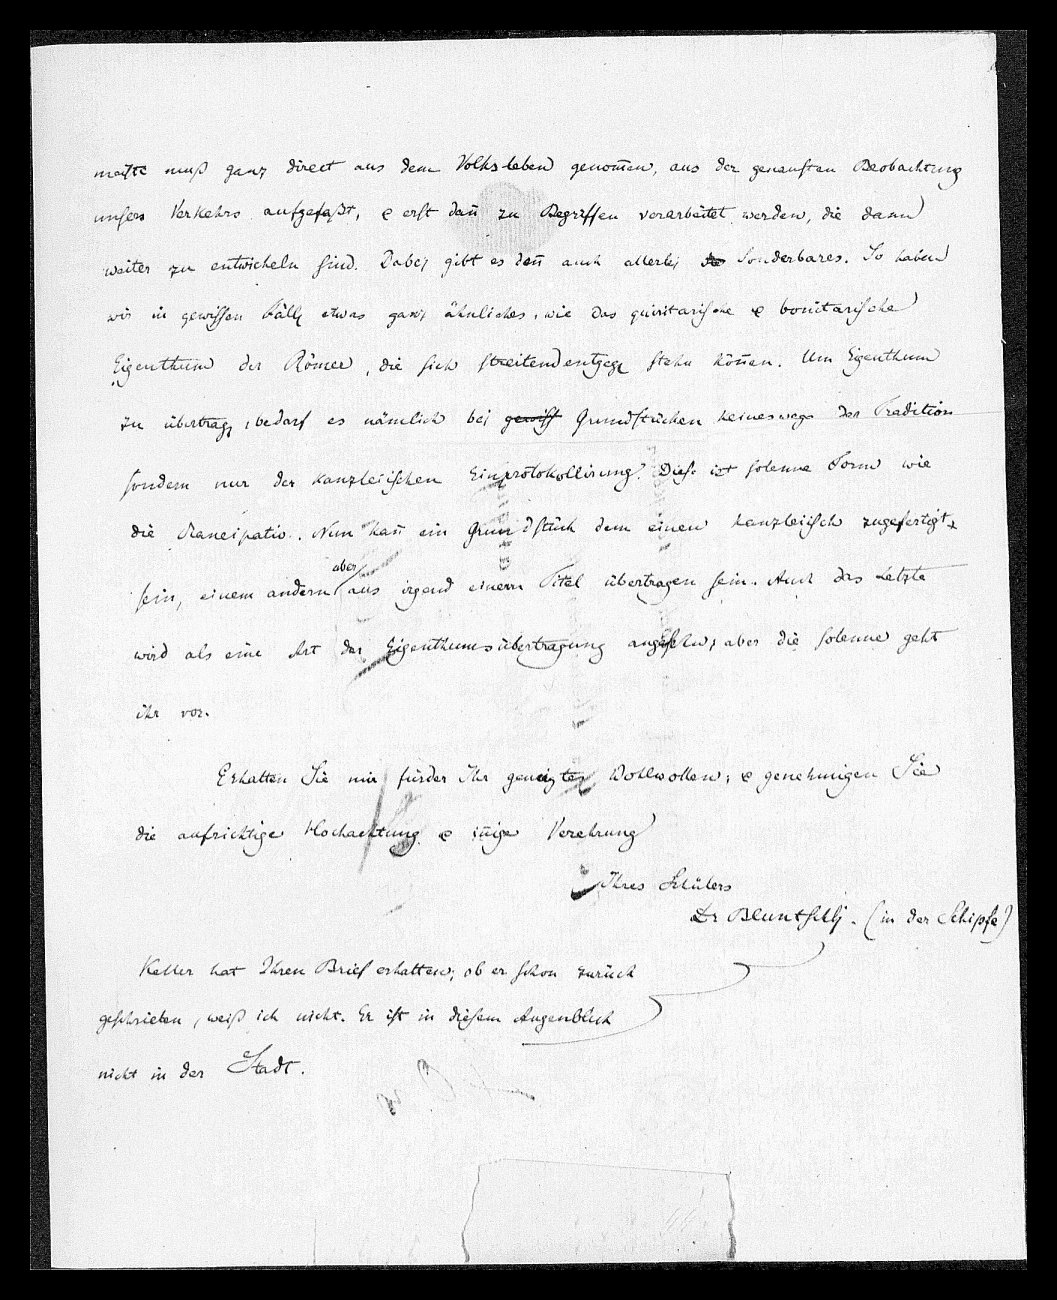 meiste muß ganz direct aus dem Volksleben genom̅en, aus der genausten Beobachtung
unsers Verkehrs aufgefaßt, & erst dan̅ zu Begriffen verarbeitet werden, die dann
weiter zu entwickeln sind. Dabej gibt es den̅ auch allerlej Sonderbares. So haben
wir in gewissen Fällen etwas ganz ähnliches, wie das quiritarische & bonitarische
Eigenthum der Römer, die sich streitend entgegen stehn kön̅en. Um Eigenthum
zu übertragen, bedarf es nämlich bej gewiss Grundstücken keineswegs der Tradition
sondern nur der kanzleiischen Einprotokollirung. Diese ist solenne Form wie
die Mancipatio. Nun kan̅ ein Grundstück dem einen kanzleiisch zugefertigt
sein, einem andern aber aus irgend einem Titel übertragen sein. Auch das Letzte
wird als eine Art der Eigenthumsübertragung angesehn, aber die solenne geht
ihr vor.
Erhalten Sie mir fürder Ihr geneigtes Wohlwollen, & genehmigen Sie
die aufrichtige Hochachtung & in̅ige Verehrung
Ihres Schülers
Dr Bluntschlj. (in der Schipfe)
Keller hat Ihren Brief erhalten; ob er schon zurück
geschrieben, weiß ich nicht. Er ist in diesem Augenblick
nicht in der Stadt.